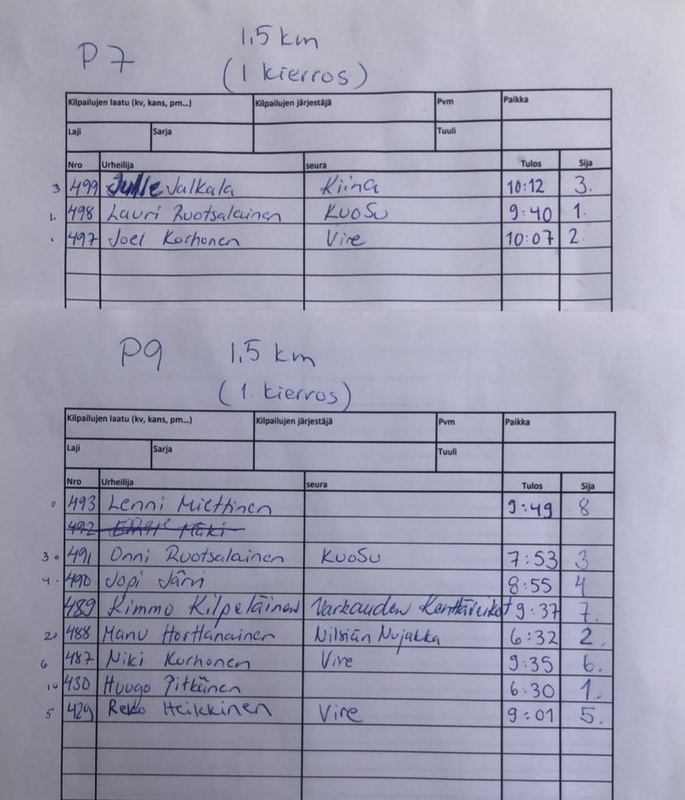 P7 1,5 km
(1 kierros)
Kilpailujen laatu (kv, kans, pm...) Kilpailujen järjestäjä Pvm Paikka
Laji Sarja Tuuli
Nro Urheilija seura Tulos Sija
3 499 Julle Jalkala Kiina 10:12 3.
1. 498 Lauri Ruotsalainen KuoSu 9:40 1.
497 Joel Korhonen Vire 10:07 2
P9 1,5 km
(1. kierros)
Kilpailujen laatu (kv, kans, pm...) Kilpailujen järjestäjä Pvm Paikka
Laji Sarja Tuuli
Nro Urheilija seura Tulos Sija
493 Lenni Miettinen 9:49 8
492
3 491 Onni Ruotsalainen KuoSu 7:53 3
4. 490 Jopi Järvi 8:55 4
489 Kimmo Kilpeläinen Varkauden Kenttäveikot 9:37 7.
2 488 Manu Horttanainen Nilsiän Nujakka 6:32 2.
6 487 Niki Korhonen Vire 9:35 6.
1 430 Huugo Pitkänen 6:30 1.
5 429 Reko Heikkinen Vire 9:01 5.